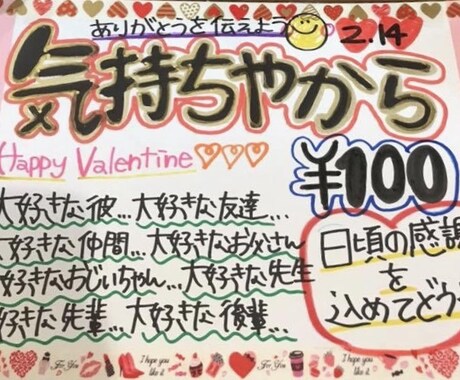 ありがとうを伝えよう
2.14
気持ちやから
Happy Valentine
¥100
大好きな彼…大好きな友達…
大好きな仲間…大好きなお父さん
大好きなおじいちゃん…大好きな先生
好きな先輩…大好きな後輩…
日頃の感謝
を
込めてどう
For You
I hope you like it
For You
I hope you like it